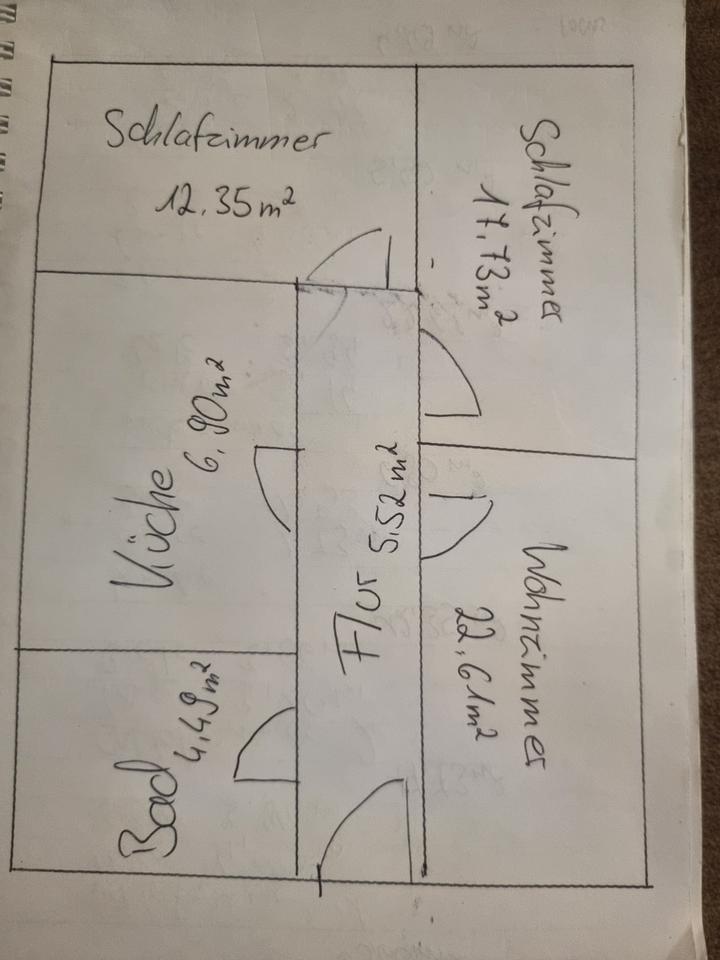 Schlafzimmer
12.35m²
Schlafzimmer
17.73m²
Küche
6,90m²
Flur
5,52m²
Wohnzimmer
22,61m²
Bad
4,49m²